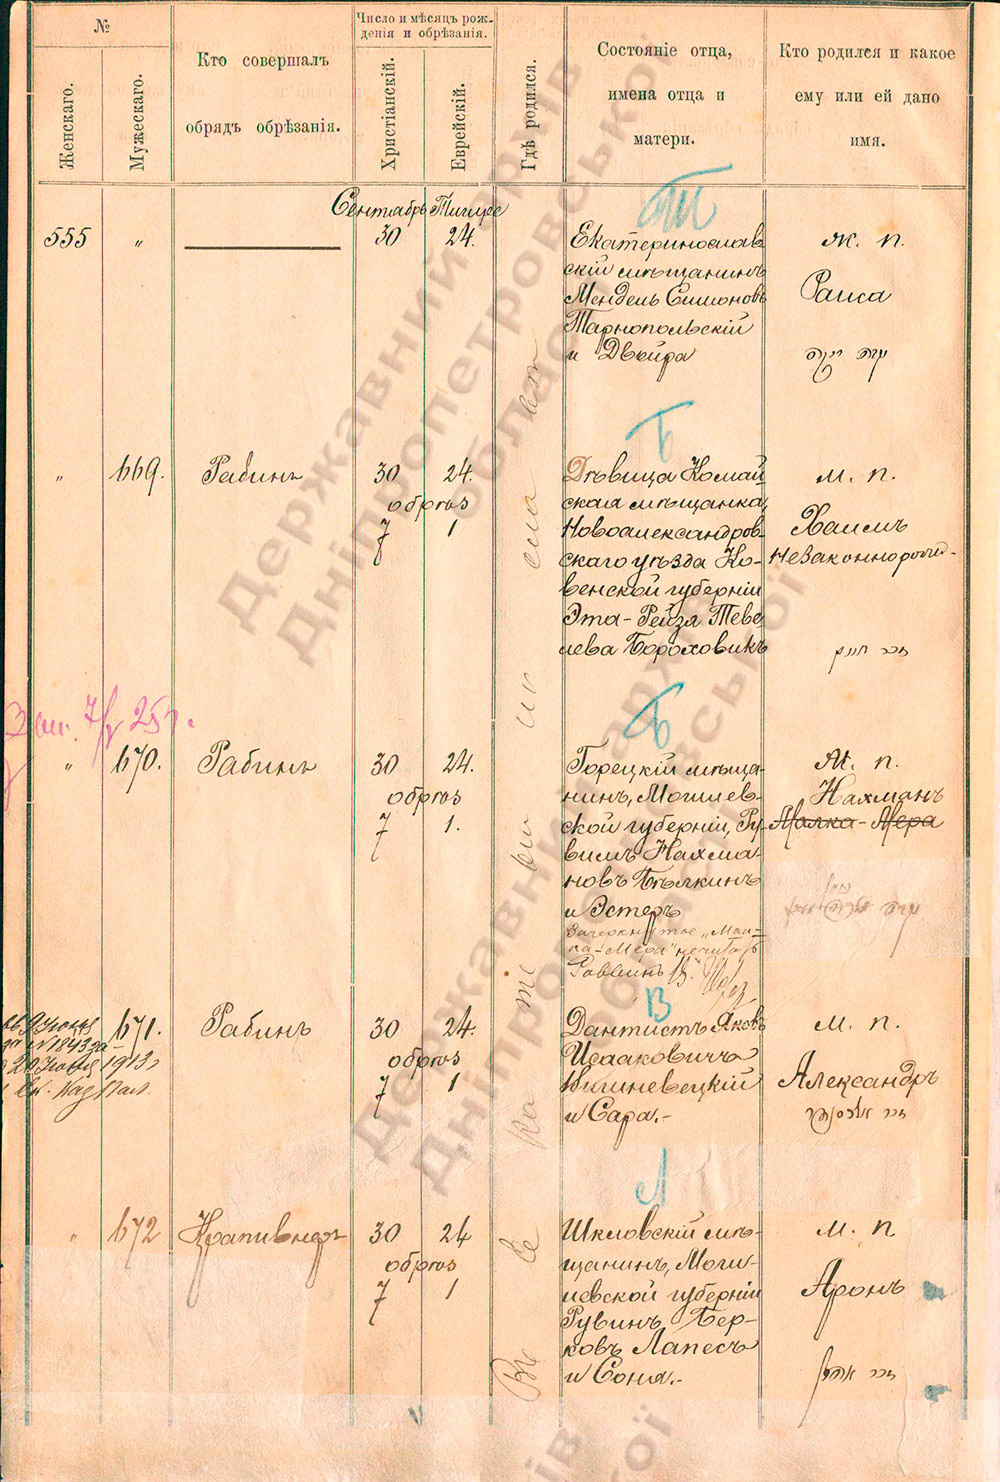 №
Женскаго.
Мужескаго.
Кто совершалъ
обрядъ обрѣзанія.
Число и мѣсяцъ рож-
денія и обрѣзанія.
Христіанскій.
Еврейскій.
Гдѣ родился.
Состояніе отца,
имена отца и
матери.
Кто родился и какое
ему или ей дано
имя.
Сентябрь Тишре
555 „ 30 24.
Екатеринослав
скій мѣщанинъ
Мендель Симоновъ
Тарнопольскій
и Двойра
Ж. п.
Раиса
Б
„ 669. Рабинъ 30 24.
обрѣз
7 1
Дѣвица Комай
ская мѣщанка,
Новоалександров-
скаго уѣзда Ко-
венской губерніи
Эта-Рейзя Теве
лева Бороховикъ
м. п.
Хаимъ
Незаконнорожд-
זכר חיים
Б
„ 670. Рабинъ 30 24.
обрѣз
7 1.
Горецкій мѣща-
нинъ, Могилев-
ской губерніи, Ру-
вимъ Нахма-
новъ Бѣлкинъ
и Эстеръ
Зачеркнутое „Мал-
ка-Мера" не читать
Раввинъ
М. п.
Нахманъ
Малка-Мера
В
671. Рабинъ 30 24.
обрѣз
7 1
Дантистъ Яковъ
Исааковичъ
Вишневецкій
и Сара.-
м. п.
Александръ
זכר אלכסנדר
1913
Л
„ 672 Крапивнеръ 30 24
обрѣз
7 1
Шкловскій мѣ-
щанинъ, Моги-
левской губерніи
Рувинъ Бер-
ковъ Лапесъ
и Соня.-
м. п
Аронъ
זכר אהרן
Державний архів
Дніпропетровської
області